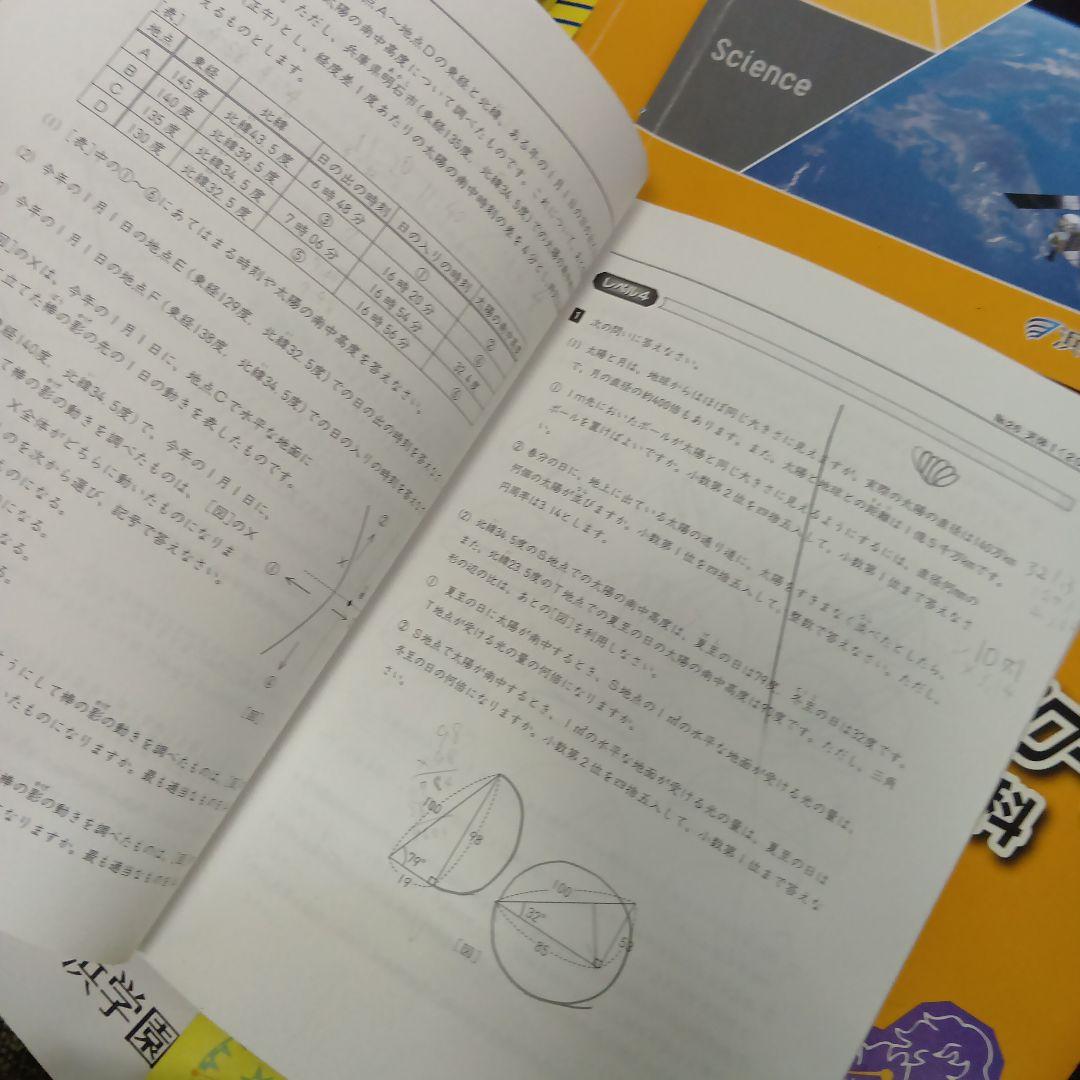 点A～地点Dの東経と北緯、ある年の1月1日の
太陽の南中高度について調べたものです。これについて、
(正午)とし、経度差1度あたりの太陽の南中時刻の差を4分と
ただし、兵庫県明石市(東経135度、北緯34.5度)での太陽の
えるものとします。
[表]
地点 東経 北緯 日の出の時刻 日の入りの時刻 太陽の南中高度
A 145度 北緯43.5度 6時48分 ① ②
B 140度 北緯39.5度 ③ 16時20分 ④
C 135度 北緯34.5度 7時06分 16時54分 32.4度
D 130度 北緯32.5度 ⑤ 16時56分 ⑥
(1) [表]中の①～⑥にあてはまる時刻や太陽の南中高度を答えなさい。
(2) 今年の1月1日の地点E(東経129度、北緯32.5度)での日の出の時刻を答えなさ
今年の1月1日の地点F(東経138度、北緯34.5度)での日の入りの時刻を答えなさい
図]のXは、今年の1月1日に、地点Cで水平な地面に
立てた棒の影の先の1日の動きを表したものです。
経140度、北緯34.5度)で、今年の1月1日に、
て棒の影の動きを調べたものは、[図]のX
X全体がどちらに動いたものになりま
ものを次から選び、記号で答えなさい。
ものになる。
になる。
なる。
る。
X
[図]
ようにして棒の影の動きを調べたものは、[図
いたものになりますか。最も適当なものを
棒の影の動きを調べたものは、[図
なりますか。最も適当なものを
レベル4
1 次の問いに答えなさい。
(1) 太陽と月は、地球からはほぼ同じ大きさに見えますが、実際の太陽の直径は140万km
で、月の直径の約400倍もあります。また、太陽と地球との距離は1億5千万kmです。
① 1m先においたボールが太陽と同じ大きさに見えるようにするには、直径何mmの
ボールを置けばよいですか。小数第2位を四捨五入して、小数第1位まで答えなさ
い。
② 春分の日に、地上に出ている太陽の通り道に、太陽をすきまなく並べたとしたら、
何個の太陽が並びますか。小数第1位を四捨五入して、整数で答えなさい。ただし、
円周率は3.14とします。
(2) 北緯34.5度のS地点での太陽の南中高度は、夏至の日は79度、冬至の日は32度です。
また、北緯23.5度のT地点での夏至の日の太陽の南中高度は90度です。ただし、三角
形の辺の比は、あとの[図]を利用しなさい。
① 夏至の日に太陽が南中するとき、S地点の1㎡の水平な地面が受ける光の量は、
T地点が受ける光の量の何倍になりますか。
② S地点で太陽が南中するとき、1㎡の水平な地面が受ける光の量は、夏至の日は
冬至の日の何倍になりますか。小数第2位を四捨五入して、小数第1位まで答えな
さい。
98
100
98
79°
19
100
32°
85
53
[図]
Science
浜学園
科